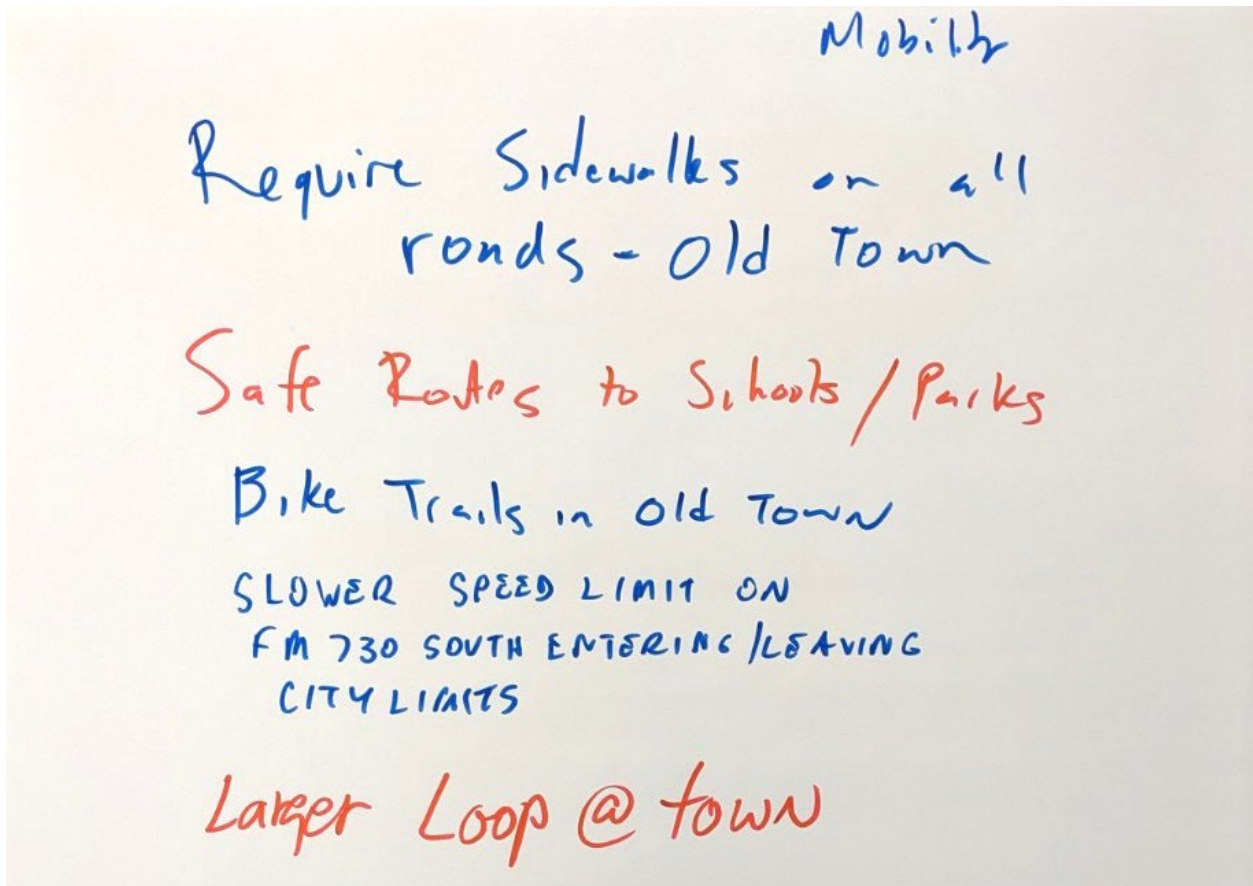 Mobility
Require Sidewalks on all
roads - Old Town
Safe Routes to Schools / Parks
Bike Trails in Old Town
SLOWER SPEED LIMIT ON
FM 730 SOUTH ENTERING/LEAVING
CITY LIMITS
Larger Loop @ town